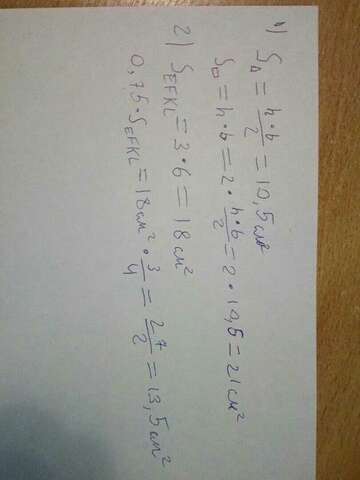 1) S△ = h·b/2 = 10,5 см²
S▱ = h·b = 2·h·b/2 = 2·10,5 = 21 см²
2) S_EFKL = 3·6 = 18 см²
0,75·S_EFKL = 18 см²·3/4 = 27/2 = 13,5 см²